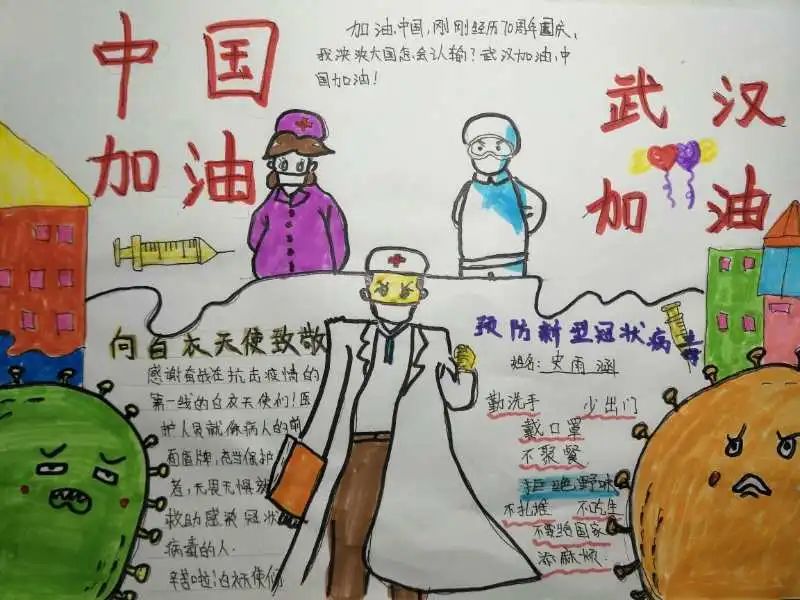 中国
加油
加油、中国，刚刚经历70周年国庆、
我泱泱大国怎会认输？武汉加油、中
国加油！
武汉
加油
向白衣天使致敬
感谢奋战在抗击疫情的
第一线的白衣天使们！医
护人员就像病人的前
面盾牌，充当保护
者，无畏无惧
救助感染冠状
病毒的人．
辛苦啦！白衣天使们
预防新型冠状病毒
姓名：史雨涵
勤洗手 少出门
戴口罩
不聚餐
拒绝野味
不扎推 不吃生
不要给国家
添麻烦．